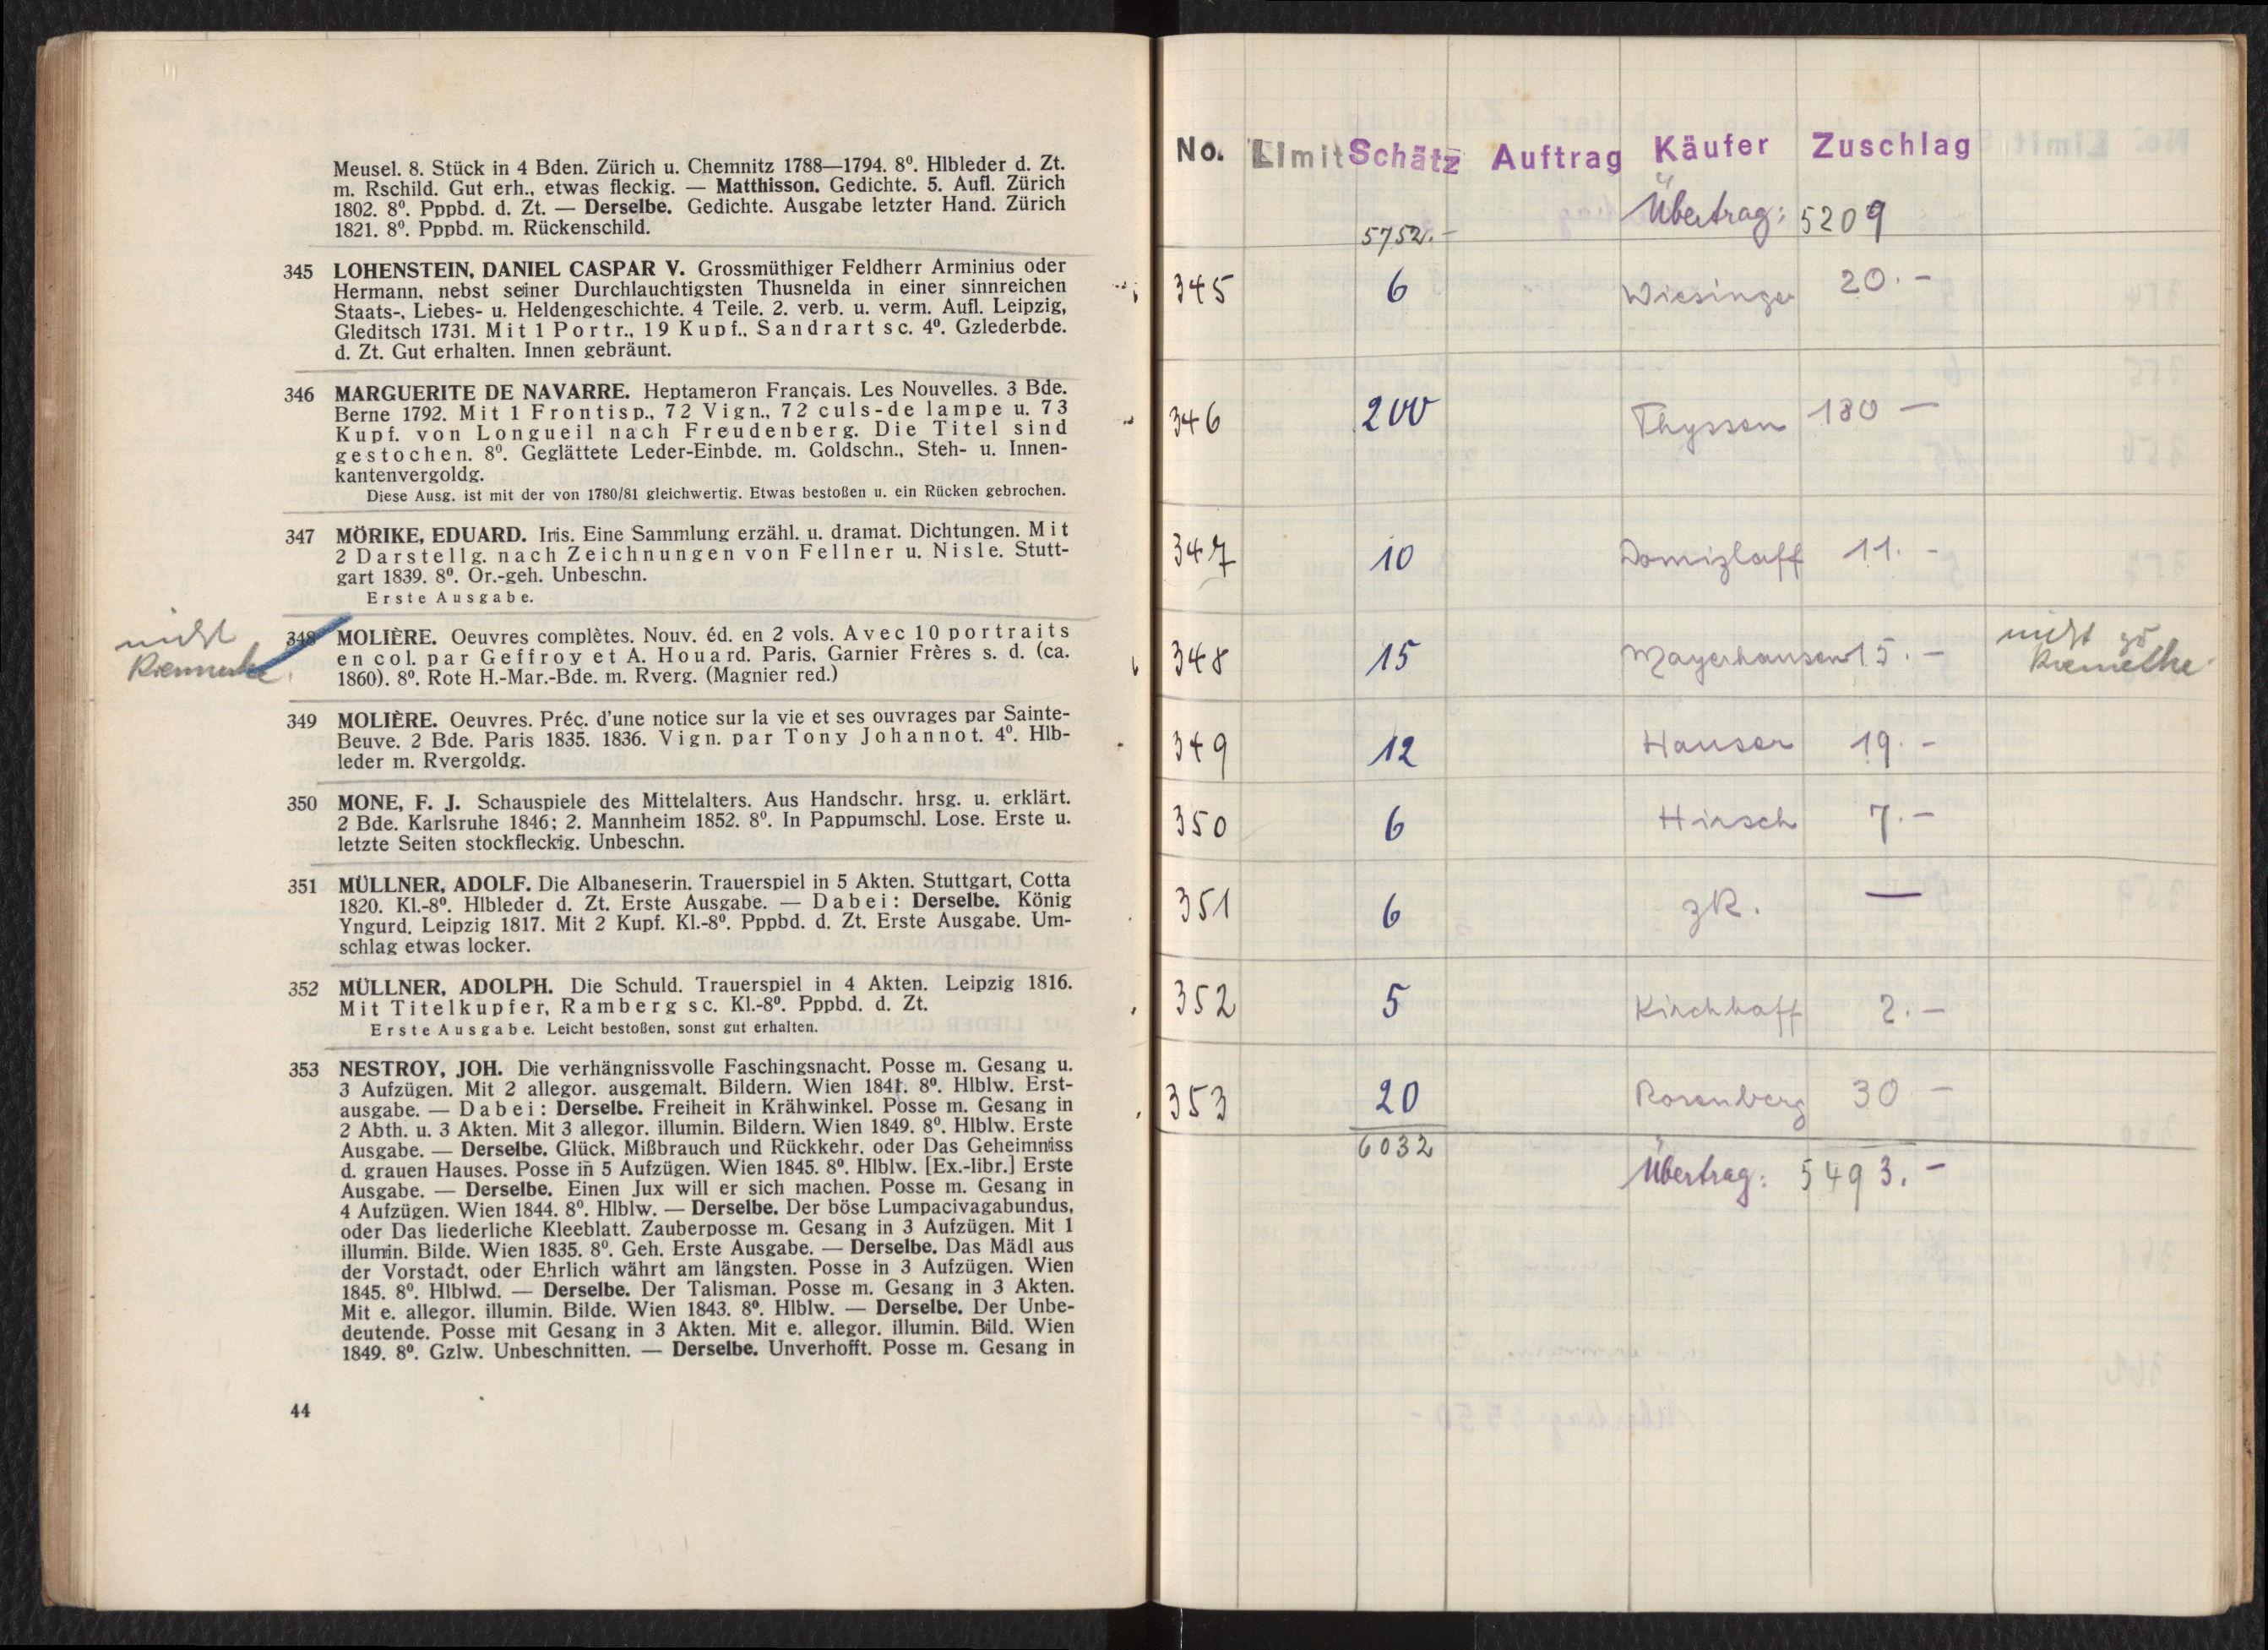 Meusel. 8. Stück in 4 Bden. Zürich u. Chemnitz 1788—1794. 8⁰. Hlbleder d. Zt.
m. Rschild. Gut erh., etwas fleckig. — Matthisson. Gedichte. 5. Aufl. Zürich
1802. 8⁰. Pppbd. d. Zt. — Derselbe. Gedichte. Ausgabe letzter Hand. Zürich
1821. 8⁰. Pppbd. m. Rückenschild.
345 LOHENSTEIN, DANIEL CASPAR V. Grossmüthiger Feldherr Arminius oder
Hermann, nebst seiner Durchlauchtigsten Thusnelda in einer sinnreichen
Staats-, Liebes- u. Heldengeschichte. 4 Teile. 2. verb. u. verm. Aufl. Leipzig,
Gleditsch 1731. Mit 1 Portr., 19 Kupf., Sandrart sc. 4⁰. Gzlederbde.
d. Zt. Gut erhalten. Innen gebräunt.
346 MARGUERITE DE NAVARRE. Heptameron Français. Les Nouvelles. 3 Bde.
Berne 1792. Mit 1 Frontisp., 72 Vign., 72 culs-de lampe u. 73
Kupf. von Longueil nach Freudenberg. Die Titel sind
gestochen. 8⁰. Geglättete Leder-Einbde. m. Goldschn., Steh- u. Innen-
kantenvergoldg.
Diese Ausg. ist mit der von 1780/81 gleichwertig. Etwas bestoßen u. ein Rücken gebrochen.
347 MÖRIKE, EDUARD. Iris. Eine Sammlung erzähl. u. dramat. Dichtungen. Mit
2 Darstellg. nach Zeichnungen von Fellner u. Nisle. Stutt-
gart 1839. 8⁰. Or.-geh. Unbeschn.
Erste Ausgabe.
nicht
348 MOLIÈRE. Oeuvres complètes. Nouv. éd. en 2 vols. Avec 10 portraits
en col. par Geffroy et A. Houard. Paris, Garnier Frères s. d. (ca.
1860). 8⁰. Rote H.-Mar.-Bde. m. Rverg. (Magnier red.)
349 MOLIÈRE. Oeuvres. Préc. d'une notice sur la vie et ses ouvrages par Sainte-
Beuve. 2 Bde. Paris 1835. 1836. Vign. par Tony Johannot. 4⁰. Hlb-
leder m. Rvergoldg.
350 MONE, F. J. Schauspiele des Mittelalters. Aus Handschr. hrsg. u. erklärt.
2 Bde. Karlsruhe 1846; 2. Mannheim 1852. 8⁰. In Pappumschl. Lose. Erste u.
letzte Seiten stockfleckig. Unbeschn.
351 MÜLLNER, ADOLF. Die Albaneserin. Trauerspiel in 5 Akten. Stuttgart, Cotta
1820. Kl.-8⁰. Hlbleder d. Zt. Erste Ausgabe. — Dabei: Derselbe. König
Yngurd. Leipzig 1817. Mit 2 Kupf. Kl.-8⁰. Pppbd. d. Zt. Erste Ausgabe. Um-
schlag etwas locker.
352 MÜLLNER, ADOLPH. Die Schuld. Trauerspiel in 4 Akten. Leipzig 1816.
Mit Titelkupfer, Ramberg sc. Kl.-8⁰. Pppbd. d. Zt.
Erste Ausgabe. Leicht bestoßen, sonst gut erhalten.
353 NESTROY, JOH. Die verhängnissvolle Faschingsnacht. Posse m. Gesang u.
3 Aufzügen. Mit 2 allegor. ausgemalt. Bildern. Wien 1841. 8⁰. Hlblw. Erst-
ausgabe. — Dabei: Derselbe. Freiheit in Krähwinkel. Posse m. Gesang in
2 Abth. u. 3 Akten. Mit 3 allegor. illumin. Bildern. Wien 1849. 8⁰. Hlblw. Erste
Ausgabe. — Derselbe. Glück, Mißbrauch und Rückkehr, oder Das Geheimniss
d. grauen Hauses. Posse in 5 Aufzügen. Wien 1845. 8⁰. Hlblw. [Ex.-libr.] Erste
Ausgabe. — Derselbe. Einen Jux will er sich machen. Posse m. Gesang in
4 Aufzügen. Wien 1844. 8⁰. Hlblw. — Derselbe. Der böse Lumpacivagabundus,
oder Das liederliche Kleeblatt. Zauberposse m. Gesang in 3 Aufzügen. Mit 1
illumin. Bilde. Wien 1835. 8⁰. Geh. Erste Ausgabe. — Derselbe. Das Mädl aus
der Vorstadt, oder Ehrlich währt am längsten. Posse in 3 Aufzügen. Wien
1845. 8⁰. Hlblwd. — Derselbe. Der Talisman. Posse m. Gesang in 3 Akten.
Mit e. allegor. illumin. Bilde. Wien 1843. 8⁰. Hlblw. — Derselbe. Der Unbe-
deutende. Posse mit Gesang in 3 Akten. Mit e. allegor. illumin. Bild. Wien
1849. 8⁰. Gzlw. Unbeschnitten. — Derselbe. Unverhofft. Posse m. Gesang in
44
No. Limit Schätz Auftrag Käufer Zuschlag
5752.- Übertrag: 5209
345 6 Wiesinger 20.-
346 200 Thyssen 180 —
347 10 Domizlaff 11.-
348 15 Mayerhausen 15.- nicht
349 12 Hauser 19.-
350 6 Hirsch 7.-
351 6 zR. —
352 5 Kirchhoff 2.-
353 20 Rosenberg 30 -
6032 Übertrag: 5493.-